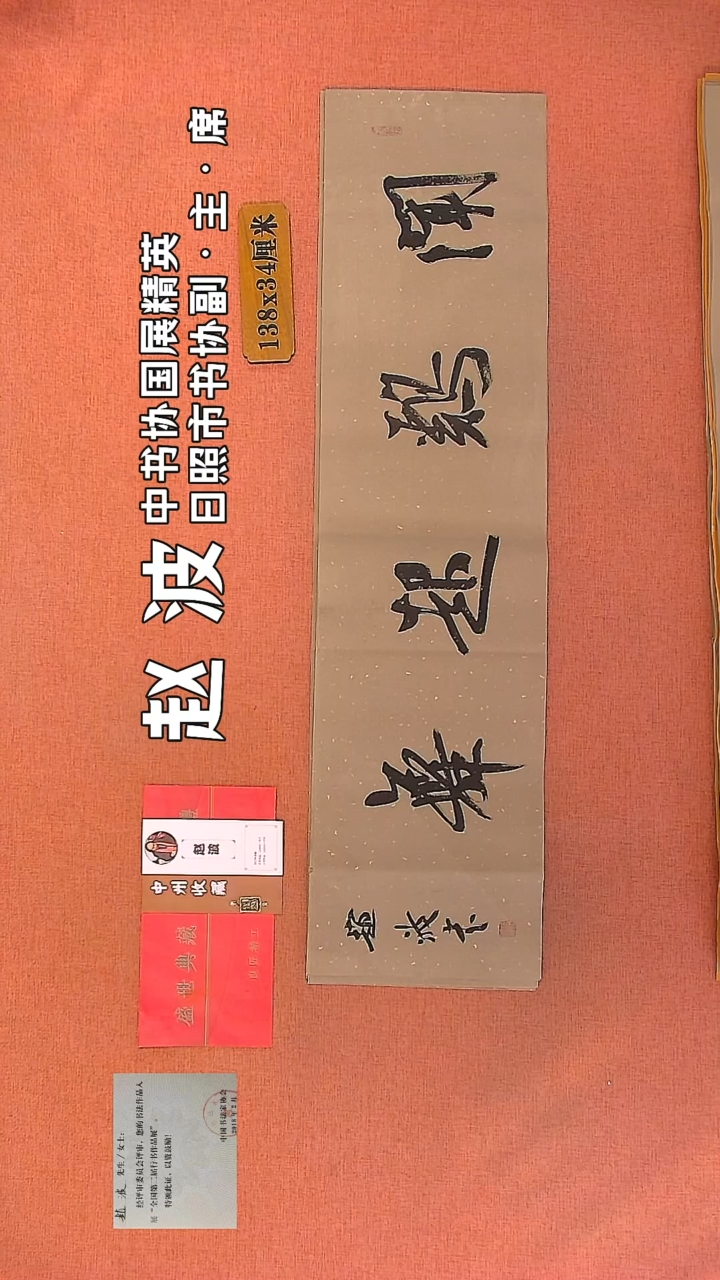 赵 波
中书协国展精英
日照市书协副·主·席
138x34厘米
闻鷄起舞
趙波书
赵波
中州收藏
盛世典藏
赵 波 先生/女士:
经评审委员会评审,您的书法作品入
展“全国第二届行书作品展”。
特颁此证,以资鼓励!
中国书法家协会
2018年2月